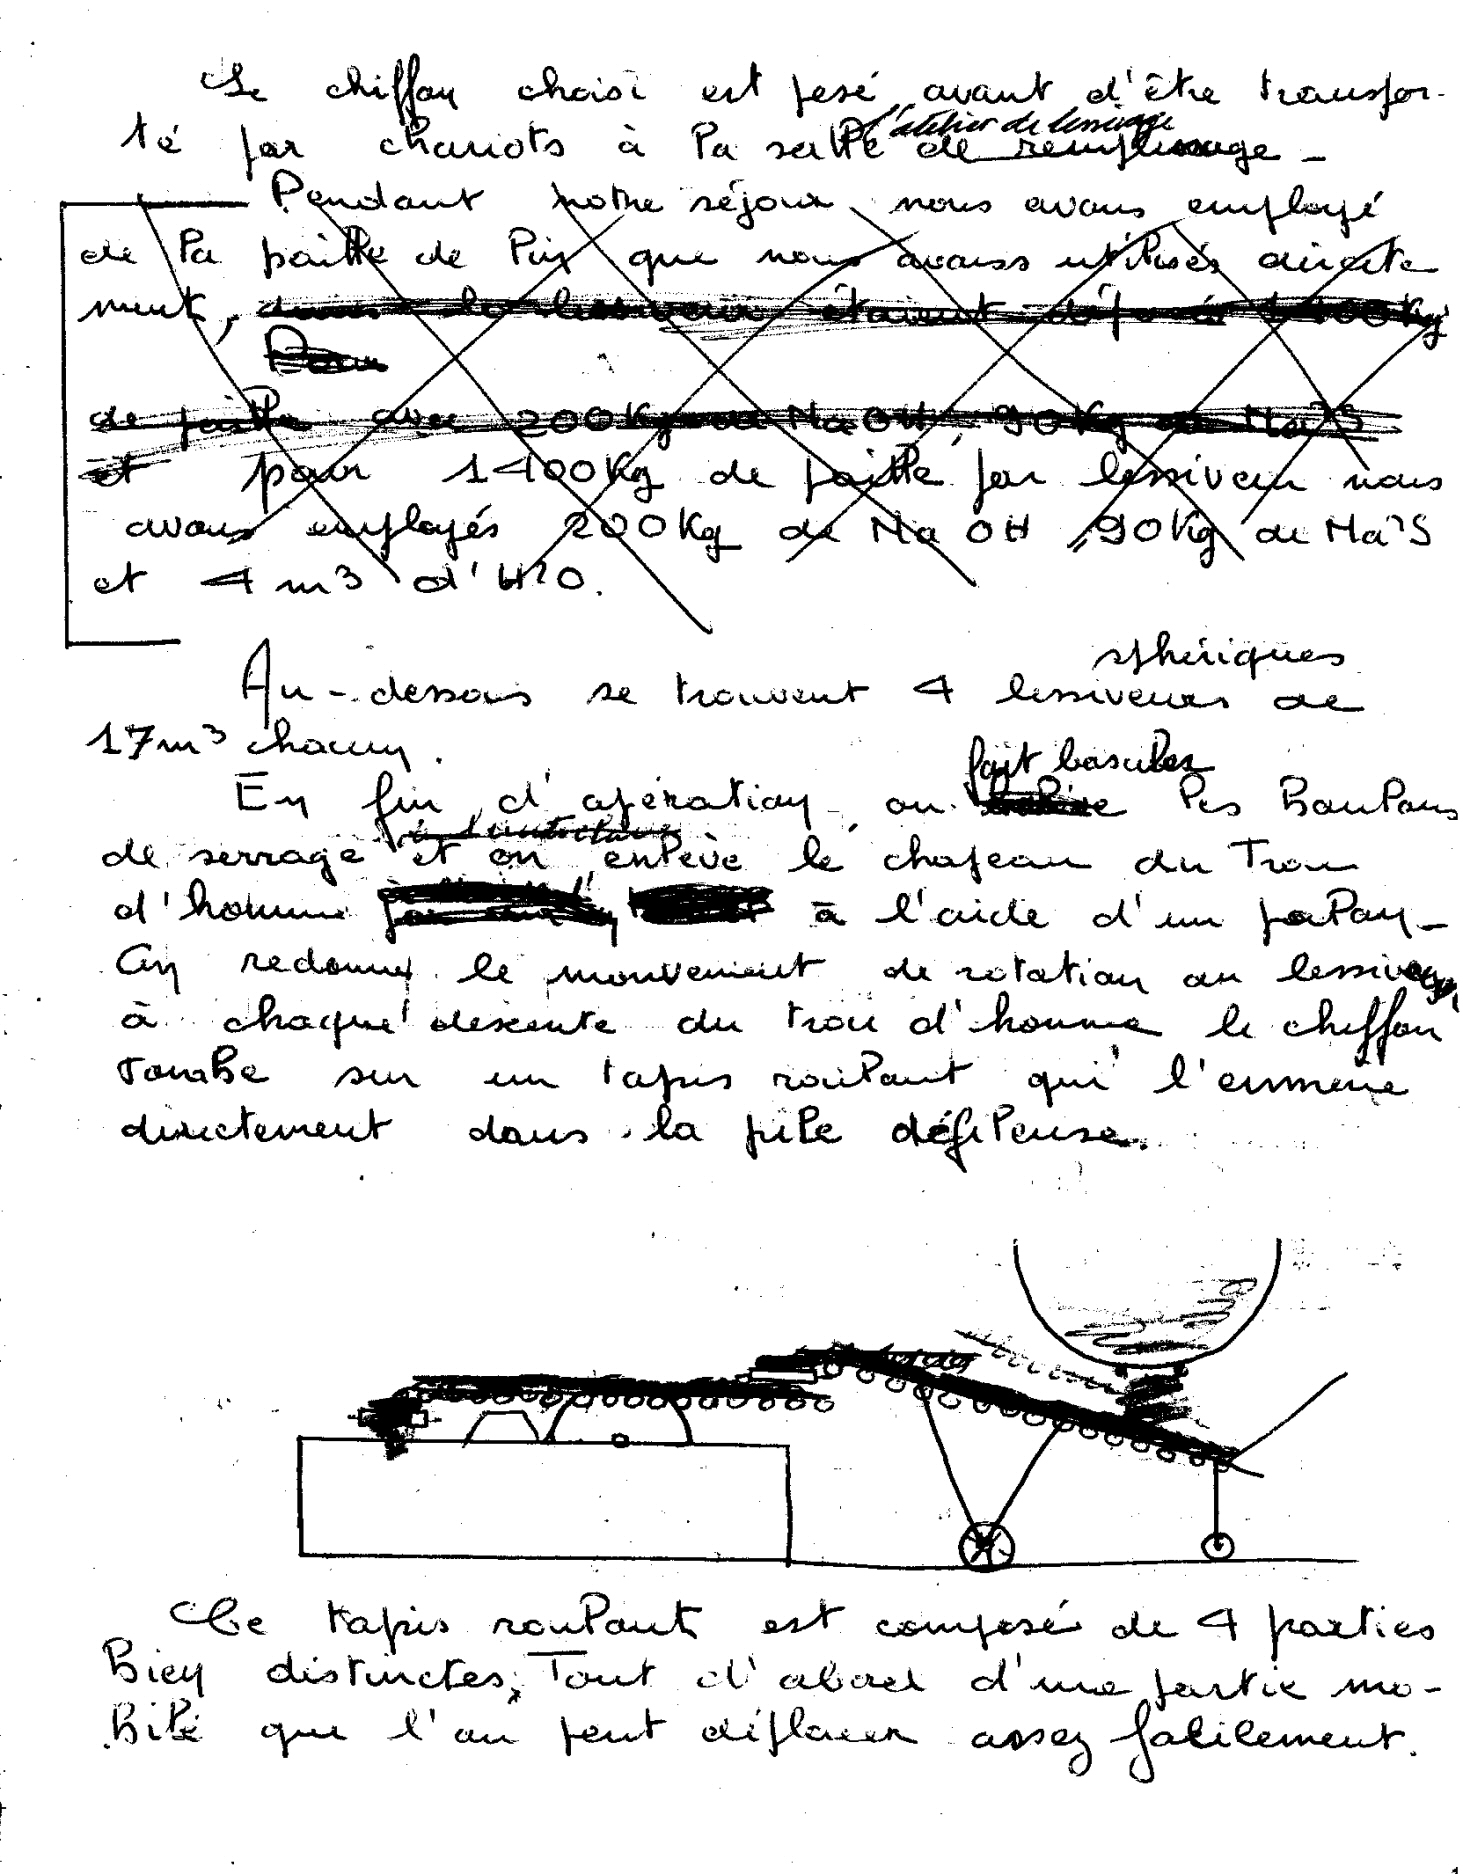 Le chiffon choisi est pesé avant d'être transpor-
l'atelier de lessivage
té par chariots à la salle de remplissage -
Pendant notre séjour nous avons employé
de la paille de lin que nous avons utilisés directe
ment, dans les lessiveurs étaient déposés 1400Kg
Pour
de paille avec 200Kg de NaOH, 90Kg de Na²S
et pour 1400Kg de paille par lessiveur nous
avons employés 200Kg de NaOH, 90Kg de Na²S
et 4 m3 d'H²O.
sphériques
Au-dessous se trouvent 4 lessiveurs de
17m³ chacun.
fait basculer
En fin d'opération, on les Boulons
à l'autoclave
de serrage et on enlève le chapeau du Trou
d'homme à l'aide d'un palan -
On redonne le mouvement de rotation au lessiveur,
à chaque descente du trou d'homme le chiffon
Tombe sur un tapis roulant qui l'emmène
directement dans la pile défileuse.
Ce tapis roulant est composé de 4 parties
Bien distinctes, Tout d'abord d'une partie mo-
Bile que l'on peut déplacer assez facilement.